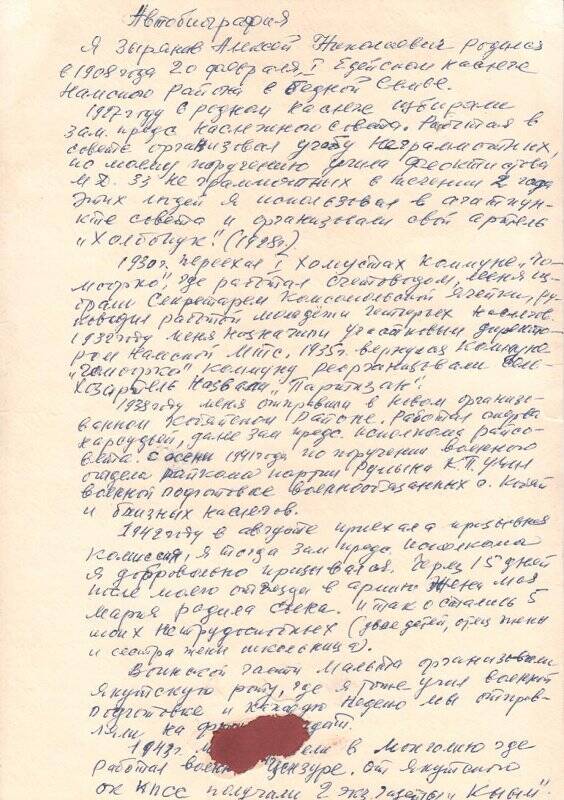 Автобиография
Я Зырянов Алексей Николаевич родился
в 1908 года 20 февраля, I Едейском наслеге
Намского района в бедной семье.
1927 году в родном наслеге избирали
зам. предс наслежного совета. Работая в
совете организовал учебу неграмотных,
по моему поручению учила Феоктистова
М.Д. 33 не грамотных в течении 2 года
этих людей я использовал в агитпун-
кте совета и организовали свой артель
"Холбонук" (1928г).
1930г. переехал I Хомустах коммуне "Чо-
моорко", где работал счетоводом, меня из-
брали секретарем комсомольской ячейки, ру-
ководил работой молодежи четырех наслегов.
1932 году меня назначили участковым директо-
ром Намской МТС. 1935г. вернулся коммуне
коммуну реорганизовали сель-
хозартель назвали "Партизан".
1938 году меня отправили в новом организо-
ванной Кобяйском районе. Работал сперва
нарсудьей, далее зам предс. исполкома райсо-
вета. С осени 1941 года по поручению военного
отдела райкома партии К.П. учил
военной подготовке военнообязанных с. Кобяй
и близных наслегов.
1942 году в августе приехала призывная
комиссия, я тогда зам предс. исполкома
Я добровольно призывался. Через 15 дней
после моего отъезда в армию жена моя
Мария родила сына. и так остались 5
моих нетрудоспобных (двое детей, отец жены
и сестра жены школьница).
Воинской части Мальта организовали
якутскую роту, где я тоже учил военной
подготовке и каждую неделю мы отправ-
ляли на
1943г. в Монголию где
работал цензуре. От якутского
ок КПСС получали 2 экз. газеты "Кыым".